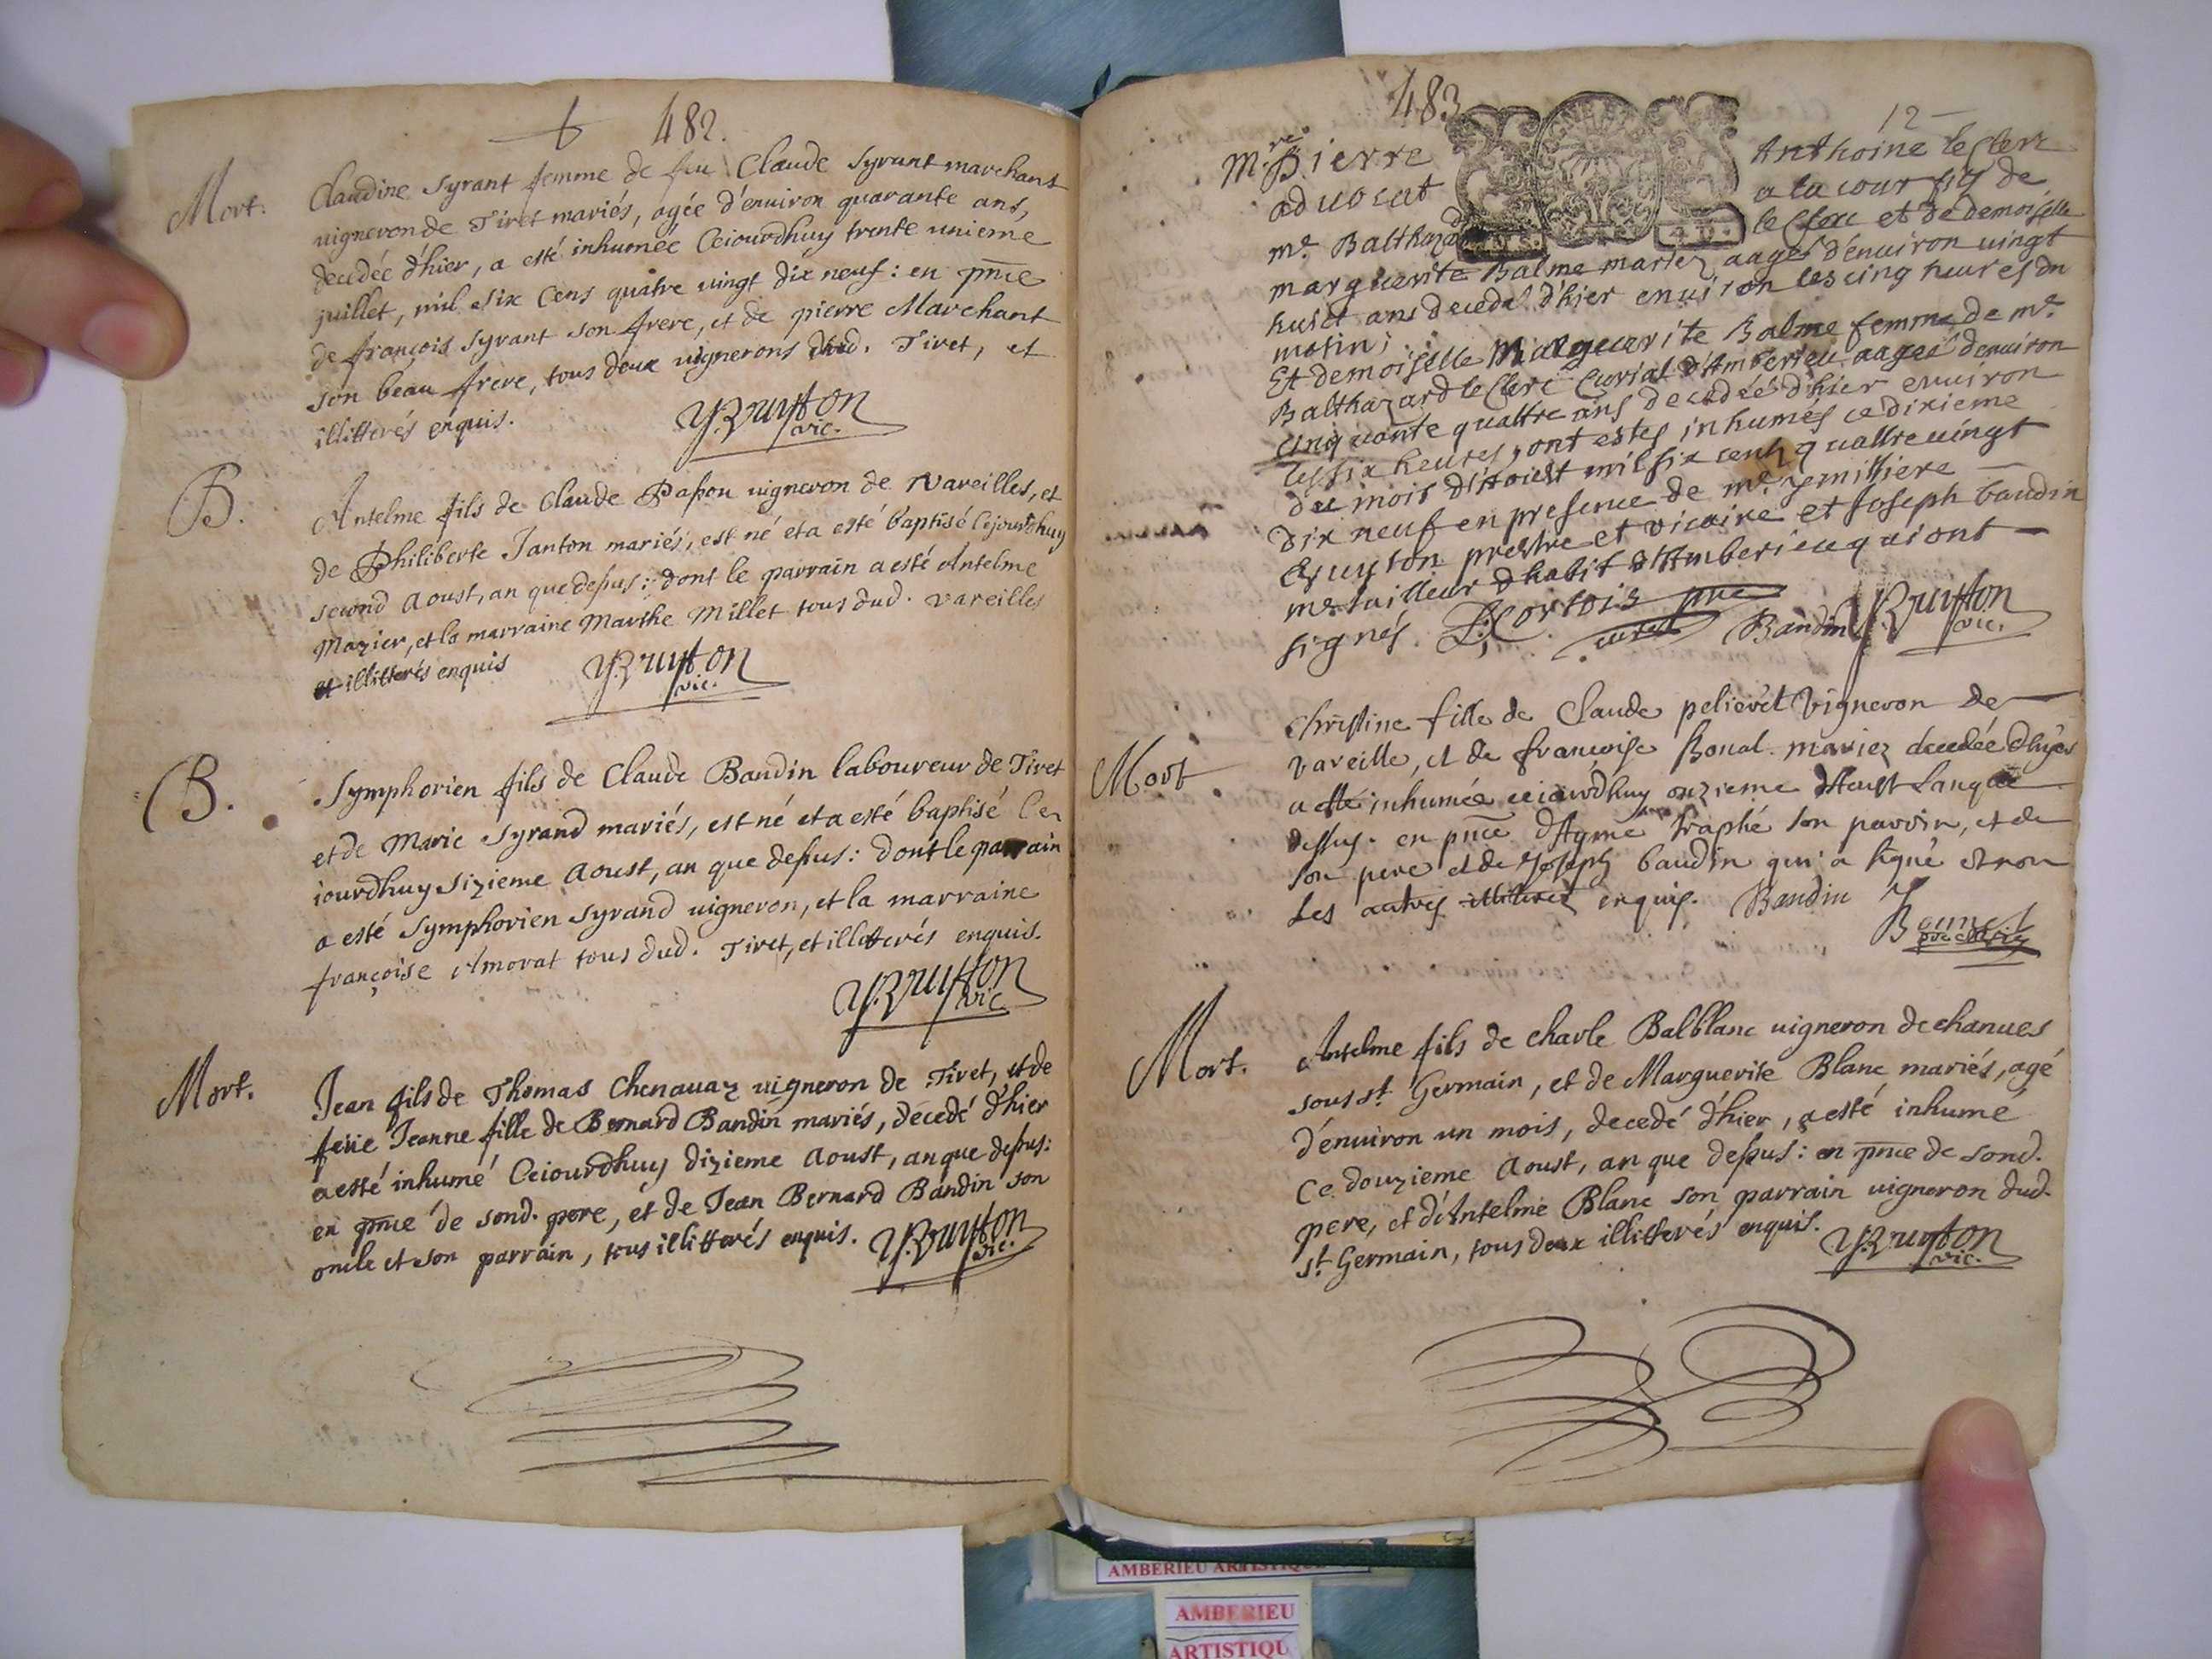 482.
Mort.
Claudine Syrant femme de feu Claude Syrant marchant
vigneron de Tiret mariés, agée d'enuiron quarante ans,
decedée d'hier, a esté inhumée Ceiourdhuy trente unieme
juillet, mil six Cens quatre vingt dix neuf: en pnce
de françois Syrant son frere, et de pierre Marchant
son beau frere, tous deux vignerons dud. Tiret, et
illitterés enquis.
Y. Bruyson
vic.
B.
Antelme fils de Claude Papon vigneron de Vareilles, et
de Philiberte Janton mariés, est né et a esté baptisé Cejourdhuy
second Aoust, an que dessus: dont le parrain a esté Antelme
Mazier, et la marraine Marthe Millet tous dud. Vareilles
et illitterés enquis
Y. Bruyson
vic.
B.
Symphorien fils de Claude Bandin laboureur de Tiret
et de Marie Syrand mariés, est né et a esté baptisé Ce
iourdhuy sizieme Aoust, an que dessus: dont le parrain
a esté Symphorien Syrand vigneron, et la marraine
françoise Amorat tous dud. Tiret, et illitterés enquis.
Y. Bruyson
vic
Mort.
Jean fils de Thomas Chenauaz vigneron de Tiret, et de
feue Jeanne fille de Bernard Bandin mariés, décedé d'hier
a esté inhumé Ceiourdhuy dizieme Aoust, an que dessus:
en pnce de sond. pere, et de Jean Bernard Bandin son
oncle et son parrain, tous illitterés enquis.
Y. Bruyson
vic.
483
12
Mre Pierre Anthoine le Clerc
aduocat a la cour fils de
me. Balthazard le Clerc et de demoiselle
marguerite Balme mariez aagé d'enuiron vingt
huict ans decedé d'hier enuiron les cinq heures du
matin;
Et demoiselle Marguerite Balme femme de me.
Balthazard le Clerc Curial d'Amberieu aageé denuiron
cinquante quattre ans decedeé d'hier enuiron
les six heures, ont estes inhumés ce dixieme
du mois d'Aoust mil six cent quattre vingt
dix neuf en presence de me.
Bruyson prestre et vicaire et Joseph baudin
me tailleur d'habit d'Amberieu qui ont
signés.
Cortois pre
curé
Bandin
Y. Bruyson
vic.
Mort
Christine fille de Claude pelieret Vigneron de
Vareille, et de francoise Bonal mariez decedée dhyer
a esté inhumée ceiourdhuy onzieme d'Aoust Lan que
dessus. en pnce d'Ayme Traphé son parrin, et de
son pere et de Joseph baudin qui a signé et non
Les autres illiterez enquis. Bandin
Bonnet
Mort.
Antelme fils de Charle Balblanc vigneron de chanues
sous st. Germain, et de Marguerite Blanc mariés, agé
d'enuiron un mois, decedé d'hier, a esté inhumé
Ce douzieme Aoust, an que dessus: en pnce de sond.
pere, et d'Antelme Blanc son parrain vigneron dud.
st. Germain, tous deux illitterés enquis.
Y. Bruyson
vic.
AMBERIEU ARTISTIQUE
AMBERIEU
ARTISTIQU